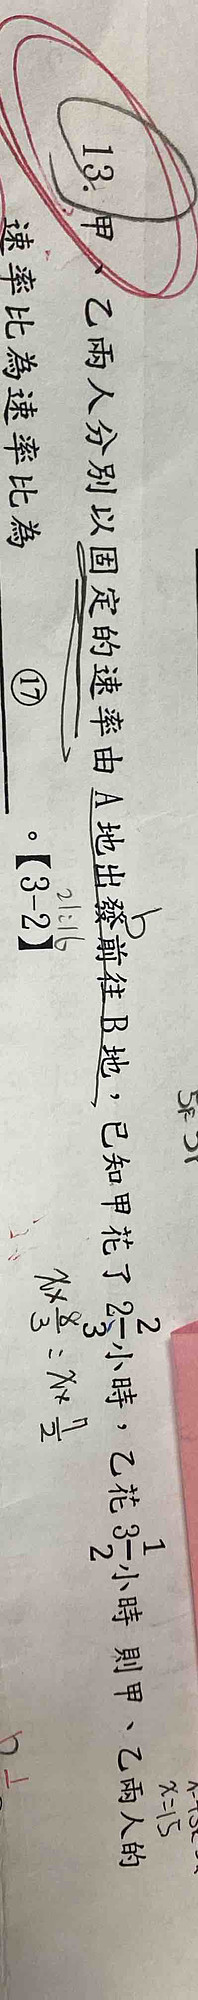 13. 甲、乙兩人分別以固定的速率由 A 地出發前往 B 地，已知甲花了 2 2/3 小時，乙花 3 1/2 小時 則甲、乙兩人的
速率比為速率比為 ⑰ 。【3-2】
21:16
x× 8/3 : x× 7/2
x=15